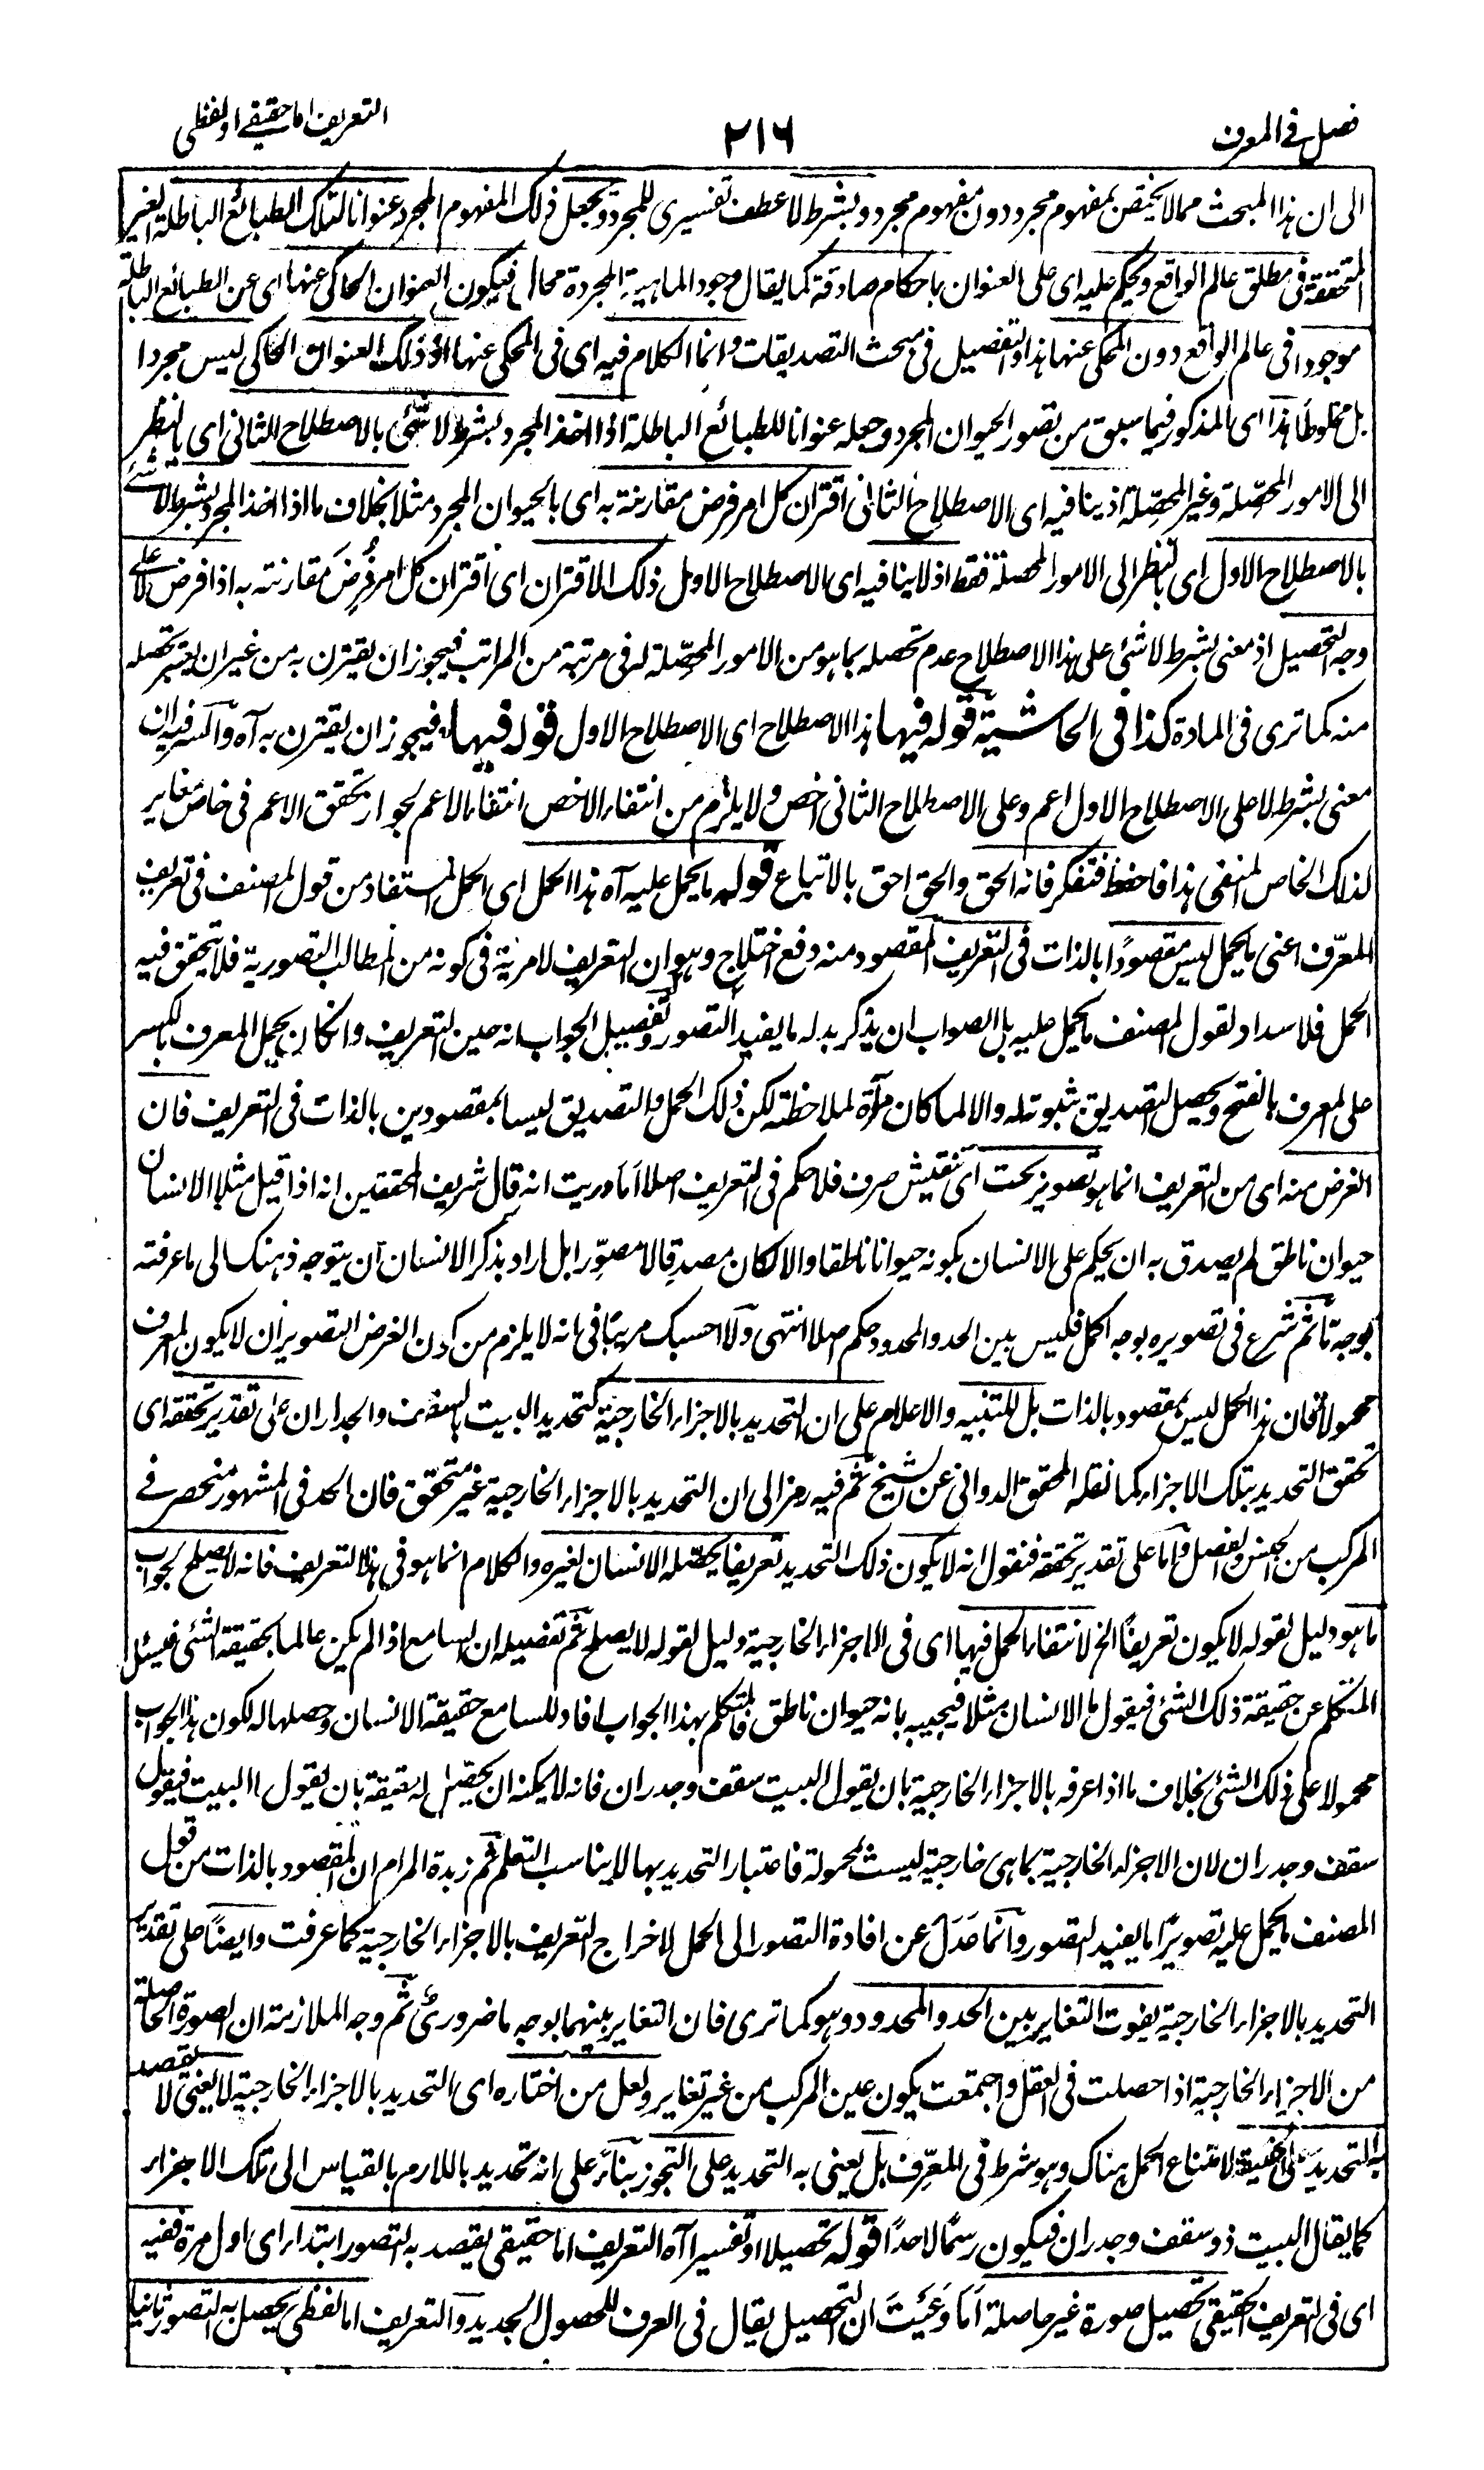 فصل في المعرف
٢١٦
التعريف اما حقيقي او لفظي
الى ان هذا المبحث مما لا يختص بمفهوم مجرد دون مفهوم مجرد وبشرط لا عطف تفسيرى للمجرد ويجعل ذلك المفهوم المجرد عنوانا لتلك الطبائع الباطلة الغير
المتحققة فى مطلق عالم الواقع ويحكم عليه اى على العنوان باحكام صادقة كما يقال وجود الماهية المجردة محال فيكون العنوان الحاكى عنها اى عن الطبائع الباطلة
موجودا فى عالم الواقع دون المحكى عنها هذا والتفصيل فى مبحث التصديقات وانما الكلام فيه اى فى المحكى عنها اذ ذلك العنوان الحاكى ليس مجردا
بل مخلوطا هذا اى المذكور فيما سبق من تصور الحيوان المجرد وجعله عنوانا للطبائع الباطلة اذا اخذ المجرد بشرط لا شئى بالاصطلاح الثانى اى بالنظر
الى الامور المحصّلة وغير المحصّلة اذ ينافيه اى الاصطلاح الثانى اقتران كل امر فرض مقارنته به اى بالحيوان المجرد مثلا بخلاف ما اذا اخذ المجرد بشرط لا شئے
بالاصطلاح الاول اى بالنظر الى الامور المحصلة فقط اذ لا ينافيه اى الاصطلاح الاول ذلك الاقتران اى اقتران كل امر فُرِضَ مقارنته به اذا فرض لا على
وجه التحصيل اذ معنى بشرط لا شئى على هذا الاصطلاح عدم تحصله بما هو من الامور المحصّلة له فى مرتبة من المراتب فيجوز ان يقترن به من غير ان يعتبر تحصله
منه كما ترى فى المادة كذا فى الحاشية قوله فيها هذا الاصطلاح اى الاصطلاح الاول قوله فيها فيجوز ان يقترن به آه والسر فيه ان
معنى بشرط لا على الاصطلاح الاول اعم وعلى الاصطلاح الثانى اخص ولا يلزم من انتفاء الاخص انتفاء الاعم لجواز تحقق الاعم فى خاص مغاير
لذلك الخاص المنفى هذا فاحفظ فتفكر فانه الحق والحق احق بالاتباع قوله ما يحمل عليه آه هذا الحمل اى الحمل المستفاد من قول المصنف فى تعريف
المعرّف اعنى ما يحمل ليس مقصودًا بالذات فى التعريف المقصود منه دفع اختلاج وهو ان التعريف لا مرية فى كونه من المطالب التصورية فلا يتحقق فيه
الحمل فلا سداد لقول المصنف ما يحمل عليه بل الصواب ان يذكر بدله ما يفيد التصور وتفصيل الجواب انه حين التعريف وانكان يحمل المعرف بالكسر
على المعرف بالفتح ويحصل التصديق بثبوته له والا لما كان مرآة لملاحظته لكن ذلك الحمل والتصديق ليسا بمقصودين بالذات فى التعريف فان
الغرض منه اى من التعريف انما هو تصوير بحت اى نقيش صرف فلا حكم فى التعريف اصلا اَمَا دريت انه قال شريف المحققين انه اذا قيل مثلا الانسان
حيوان ناطق لم يصدق به ان يحكم على الانسان بكونه حيوانا ناطقا والا لكان مصدقا لا مصوّرا بل اراد بذكر الانسان ان يتوجه ذهنك الى ما عرفته
بوجه ما ثم شرع فى تصويره بوجه اكمل فليس بين الحد والمحدود حكم اصلا انتهى ولا احسبك مريبا فى انه لا يلزم من كون الغرض التصوير ان لا يكون المعرف
محمولا فخان هذا الحمل ليس بمقصود بالذات بل للتنبيه والاعلام على ان التحديد بالاجزاء الخارجية كتحديد البيت بالسقف والجداران على تقدير تحققه اى
تحقق التحديد بتلك الاجزاء كما نقله المحقق الدوانى عن الشيخ ثم فيه رمز الى ان التحديد بالاجزاء الخارجية غير متحقق فان الحد فى المشهور منحصر فے
المركب من الجنس والفصل واما على تقدير تحققه فنقول انه لا يكون ذلك التحديد تعريفا يحصّله الانسان لغيره والكلام انما هو فى هذا التعريف فانه لا يصلح لجواب
ما هو دليل لقوله لا يكون تعريفًا الخ لانتفاء الحمل فيها اى فى الاجزاء الخارجية دليل لقوله لا يصلح ثم تفصيله ان السامع اذا لم يكن عالما بحقيقة الشئى فيسئل
المتكلم عن حقيقة ذلك الشئى فيقول ما الانسان مثلا فيجيبه بانه حيوان ناطق فالمتكلم بهذا الجواب افاد للسامع حقيقة الانسان وحصلها له لكون هذا الجواب
محمولا على ذلك الشئى بخلاف ما اذا عرفه بالاجزاء الخارجية بان يقول البيت سقف وجدران فانه لا يمكنه ان يحصّل له حقيقة بان يقول ما البيت فيقول
سقف وجدران لان الاجزاء الخارجية بما هى خارجية ليست بمحمولة فاعتبار التحديد بها لا يناسب التعلم ثم زبدة المرام ان المقصود بالذات من قول
المصنف ما يحمل عليه تصويرًا ما يفيد التصور وانما عَدَلَ عن افادة التصور الى الحمل لاخراج التعريف بالاجزاء الخارجية كما عرفت وايضًا على تقدير
التحديد بالاجزاء الخارجية يفوت التغاير بين الحد والمحدود وهو كما ترى فان التغاير بينهما بوجه ما ضرورىٌ ثم وجه الملازمة ان الصورة الحاصلة
من الاجزاء الخارجية اذا حصلت فى العقل واجتمعت يكون عين المركب من غير تغاير ولعل من اختاره اى التحديد بالاجزاء الخارجية لا يعنى لا يقصد
به التحديد على الحقيقة لامتناع الحمل هناك وهو شرط فى المعرِّف بل يعنى به التحديد على التجوز بناءً على انه تحديد باللازم بالقياس الى تلك الاجزاء
كما يقال البيت ذو سقف وجدران فيكون رسمًا لا حدًا قوله تحصيلا او تفسيرا آه التعريف اما حقيقى يقصد به التصور ابتداء اى اول مرة ففيه
اى فى التعريف الحقيقى تحصيل صورة غير حاصلة اَمَا وَعَيْتَ ان التحصيل يقال فى العرف للحصول الجديد والتعريف اما لفظى يحصل به التصور ثانيا